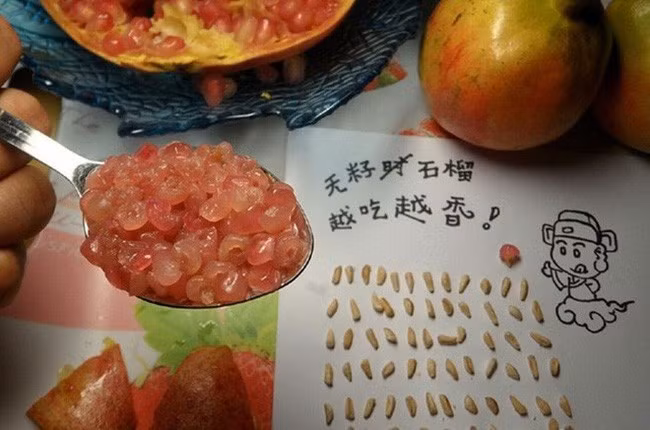 无籽时石榴
越吃越香!